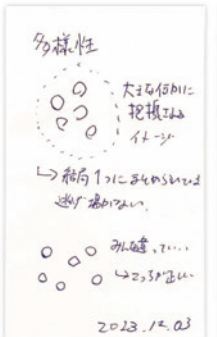 多様性
大きな何かに
把握される
イメージ
↳ 結局1つにまとめられていて
逃げ場がない。
みんな違って…
↳ こっちが正しい
2023.12.03